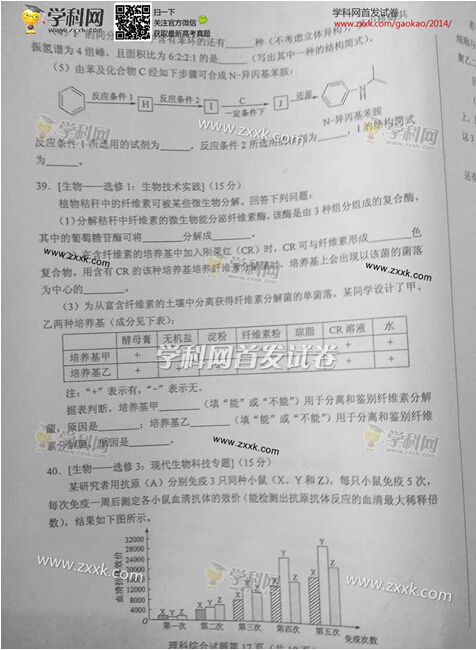 学科网
www.zxxk.com
扫一扫
关注官方微信
获取最新高考真题
学科网首发试卷
www.zxxk.com/gaokao/2014/
含有苯环的还有______种（不考虑立体异构），
振氢谱为4组峰，且面积比为6:2:2:1的是______（写出其中一种的结构简式）。
（5）由苯及化合物C经如下步骤可合成N-异丙基苯胺：
反应条件1 H 反应条件2 I C 一定条件下 J 还原
N-异丙基苯胺
反应条件1所选用的试剂为______，反应条件2所选用的试剂为______，I的结构简式
为______。
39. [生物——选修1：生物技术实践]（15分）
植物秸秆中的纤维素可被某些微生物分解。回答下列问题：
（1）分解秸秆中纤维素的微生物能分泌纤维素酶，该酶是由3种组分组成的复合酶，
其中的葡萄糖苷酶可将______分解成______。
在含纤维素的培养基中加入刚果红（CR）时，CR可与纤维素形成______色
复合物。用含有CR的该种培养基培养纤维素分解菌时，培养基上会出现以该菌的菌落
为中心的______。
（3）为从富含纤维素的土壤中分离获得纤维素分解菌的单菌落，某同学设计了甲、
乙两种培养基（成分见下表）：
酵母膏 无机盐 淀粉 纤维素粉 琼脂 CR溶液 水
培养基甲 +
培养基乙 +
注：“+”表示有，“-”表示无。
据表判断，培养基甲______（填“能”或“不能”）用于分离和鉴别纤维素分解
菌，原因是______；培养基乙______（填“能”或“不能”）用于分离和鉴别纤维
素分解菌，原因是______。
40. [生物——选修3：现代生物科技专题]（15分）
某研究者用抗原（A）分别免疫3只同种小鼠（X、Y和Z），每只小鼠免疫5次，
每次免疫一周后测定各小鼠血清抗体的效价（能检测出抗原抗体反应的血清最大稀释倍
数），结果如下图所示。
血清抗体效价
32000
28000
24000
20000
16000
12000
8000
4000
0
X Y Z X Y Z X Y Z X Y Z X Y Z
第一次 第二次 第三次 第四次 第五次 免疫次数
理科综合试题第17页
学科网首发试卷
www.zxxk.com